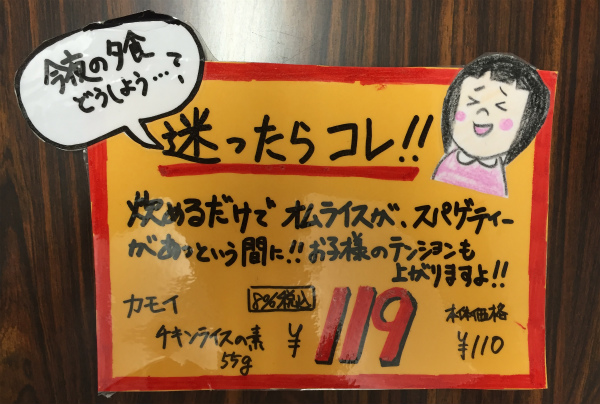 今夜の夕食
どうしよう…て、
迷ったらコレ!!
炊めるだけでオムライスが、スパゲティー
があッという間に!!お子様のテンションも
上がりますよ!!
カモイ
8%税込
チキンライスの素
55g
¥119
本体価格
¥110